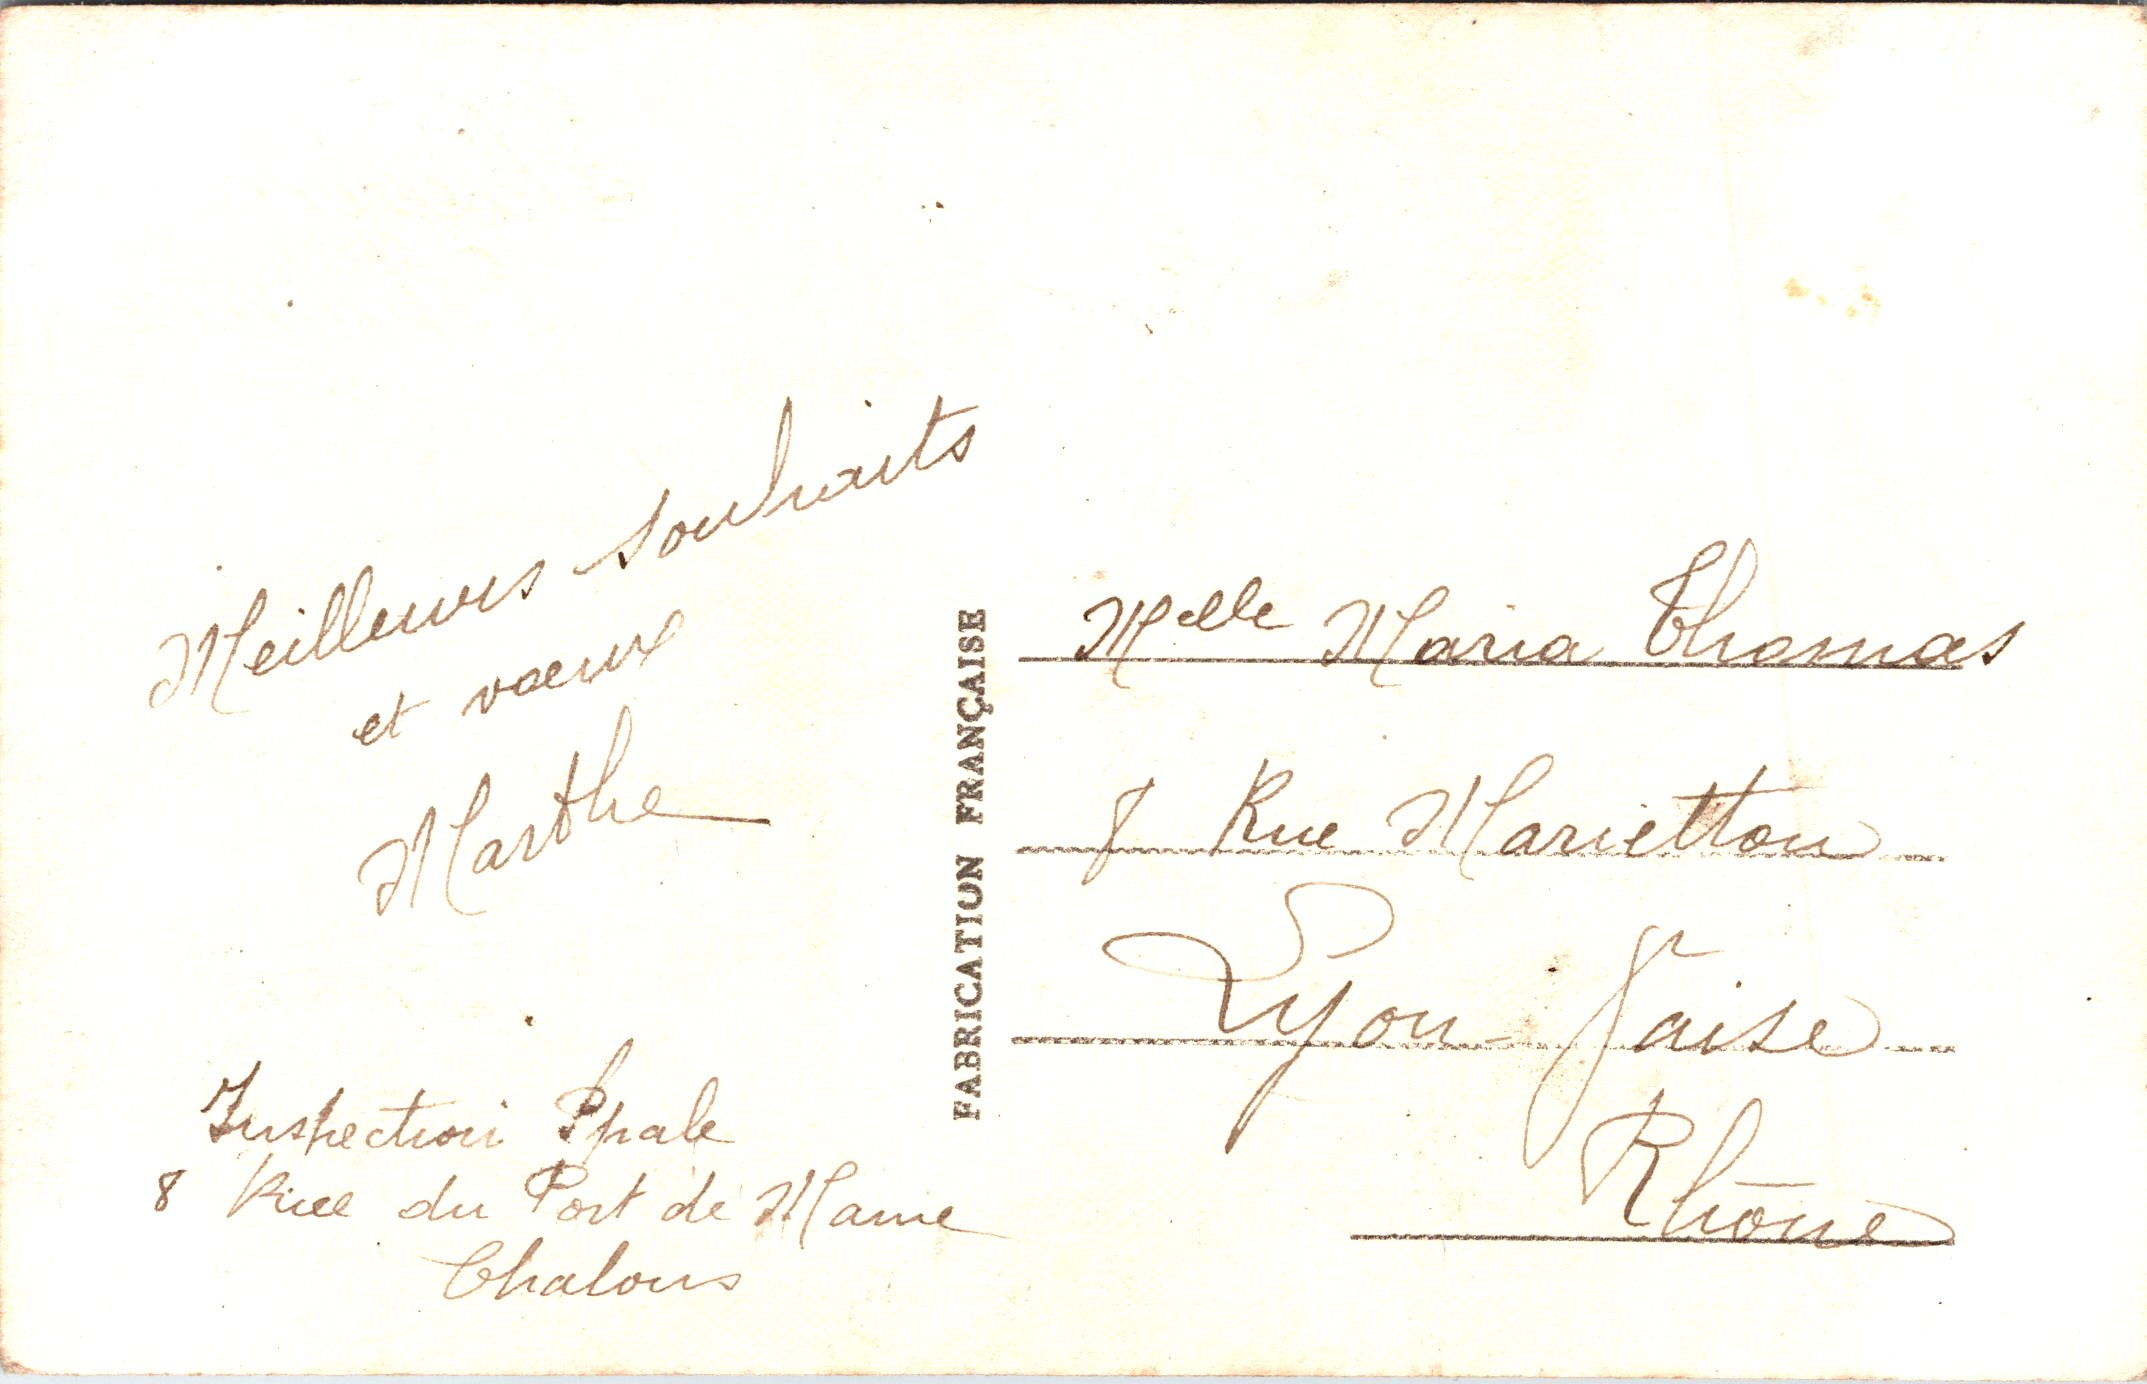 Meilleurs souhaits
et vœux
Marthe
Inspection Ppale
8 Rue du Port de Marne
Chalons
FABRICATION FRANÇAISE
Melle Maria Thomas
8 Rue Marietton
Lyon-Vaise
Rhône